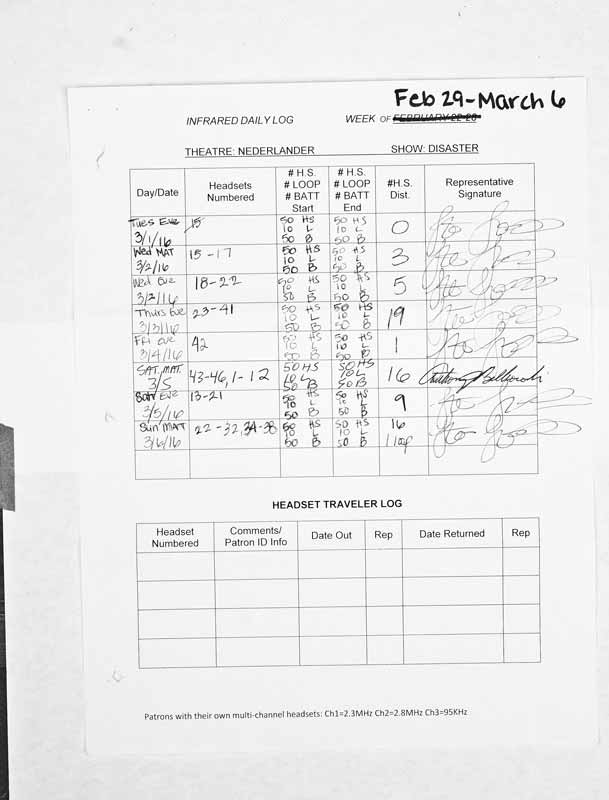 Feb 29-March 6
INFRARED DAILY LOG WEEK OF FEBRUARY 22-28
THEATRE: NEDERLANDER SHOW: DISASTER
Day/Date Headsets Numbered # H.S. # LOOP # BATT Start # H.S. # LOOP # BATT End #H.S. Dist. Representative Signature
Tues Eve 3/1/16 15 50 HS 10 L 50 B 50 HS 10 L 50 B 0
Wed MAT 3/2/16 15-17 50 HS 10 L 50 B 50 HS 10 L 50 B 3
Wed Eve 3/2/16 18-22 50 HS 10 L 50 B 50 HS 10 L 50 B 5
Thurs Eve 3/3/16 23-41 50 HS 10 L 50 B 50 HS 10 L 50 B 19
Fri eve 3/4/16 42 50 HS 10 L 50 B 50 HS 10 L 50 B 1
SAT. MAT. 3/5 43-46, 1-12 50 HS 10 L 50 B 50 HS 10 L 50 B 16
Satr Eve 3/5/16 13-21 50 HS 10 L 50 B 50 HS 10 L 50 B 9
Sun MAT 3/6/16 22-32, 34-38 50 HS 10 L 50 B 50 HS 10 L 50 B 16 1 loop
HEADSET TRAVELER LOG
Headset Numbered Comments/ Patron ID Info Date Out Rep Date Returned Rep
Patrons with their own multi-channel headsets: Ch1=2.3MHz Ch2=2.8MHz Ch3=95KHz